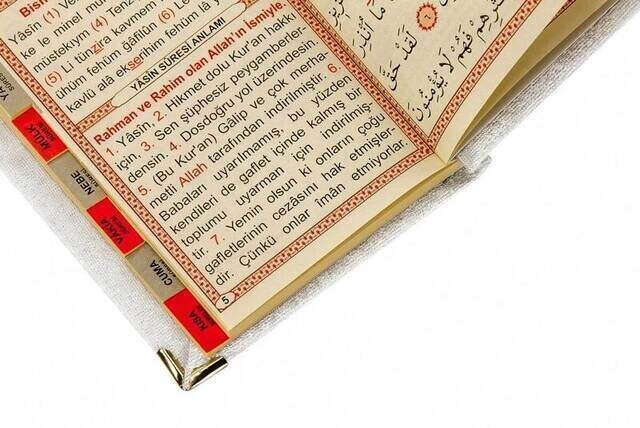 Bisr
Yâsîn (1) Ve
ke le minel mü
müstekıym (4) Tenz
(5) Li tünzira kavmem
ühüm fehüm ğâfilûn (6) Le
kavlü alâ ekserihim fehüm lâ y
YÂSİN SÛRESİ ANLAMI
Rahman ve Rahim olan Allah'ın ismiyle.
1. Yâsîn. 2. Hikmet dolu Kur'an hakkı
için. 3. Sen şüphesiz peygamberler-
densin. 4. Dosdoğru yol üzerindesin.
5. (Bu Kur'an) Gâlip ve çok merha-
metli Allah tarafından indirilmiştir. 6.
Babaları uyarılmamış, bu yüzden
kendileri de gaflet içinde kalmış bir
toplumu uyarman için indirilmiş-
tir. 7. Yemin olsun ki onların çoğu
gafletlerinin cezâsını hak etmişler-
dir. Çünkü onlar îmân etmiyorlar.
5
لَقَدْ حَقَّ
فَهُمْ لَا يُؤْمِنُونَ
YÂ
SÛRESİ
MÜLK
NEBE
VAKIA
CUMA
KISA